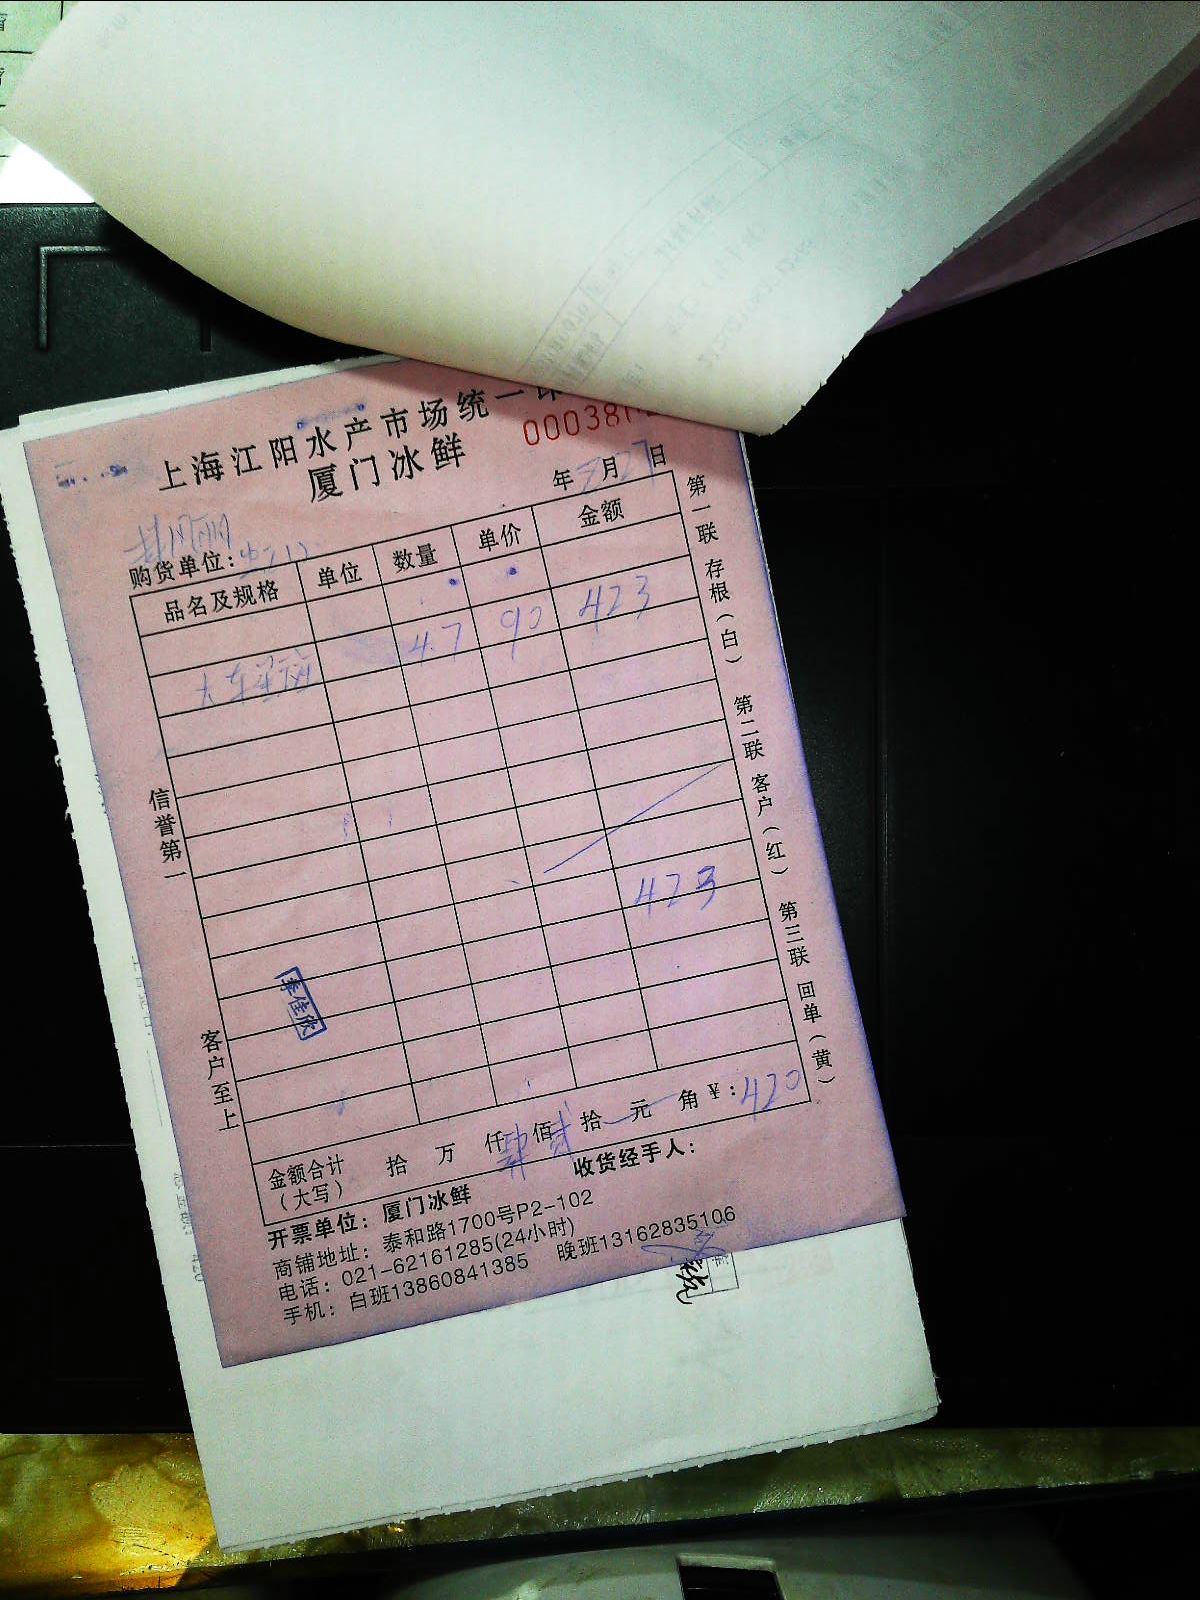 上海江阳水产市场统一
厦门冰鲜
00038
年 月27日
购货单位:
品名及规格 单位 数量 单价 金额
大东星斑 4.7 90 423
423
李佳欣
金额合计(大写) 拾 万 仟肆佰贰拾 元 角 ¥:420
开票单位:厦门冰鲜 收货经手人:
商铺地址:泰和路1700号P2-102
电话:021-62161285(24小时)
手机:白班13860841385 晚班13162835106
信誉第一
客户至上
第一联 存根(白) 第二联 客户(红) 第三联 回单(黄)